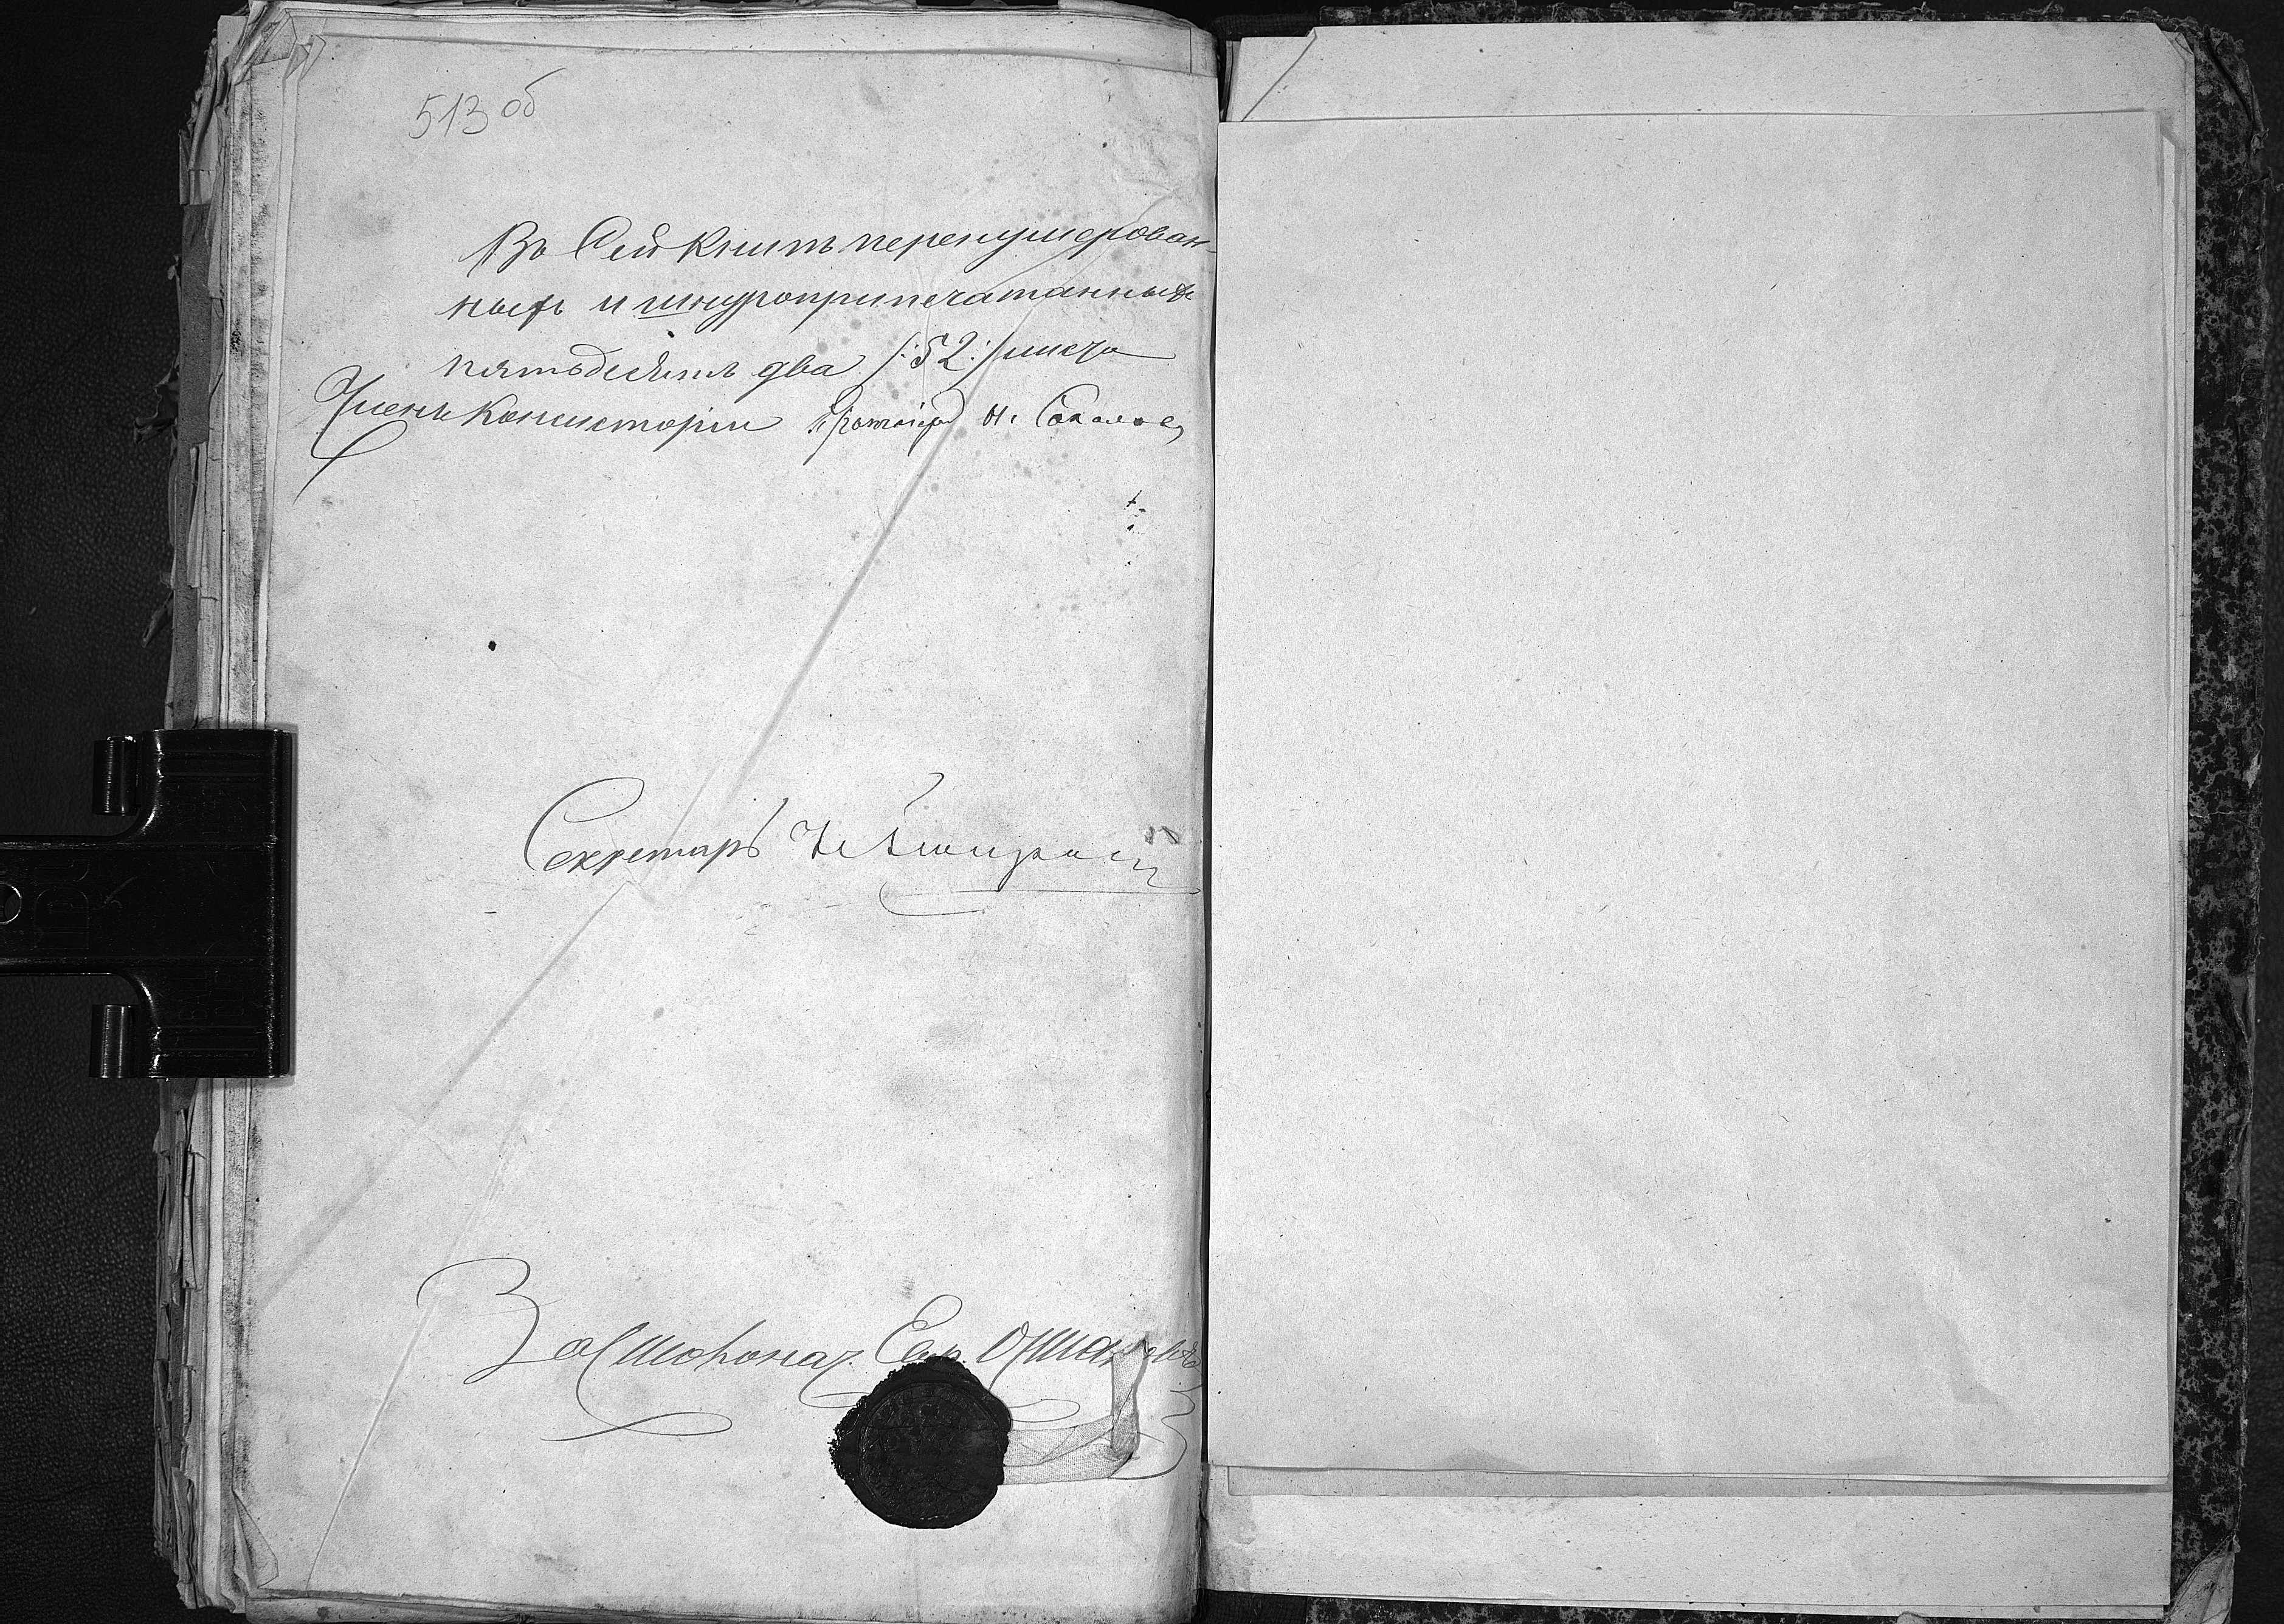 513 об
Въ Сей Книгѣ перенумерован-
ныхъ и шнуроприпечатанныхъ
пятьдесятъ два /:52:/ листа
Членъ Консисторіи Протоіерей Н. Соколовъ
Секретарь
За Столонач.